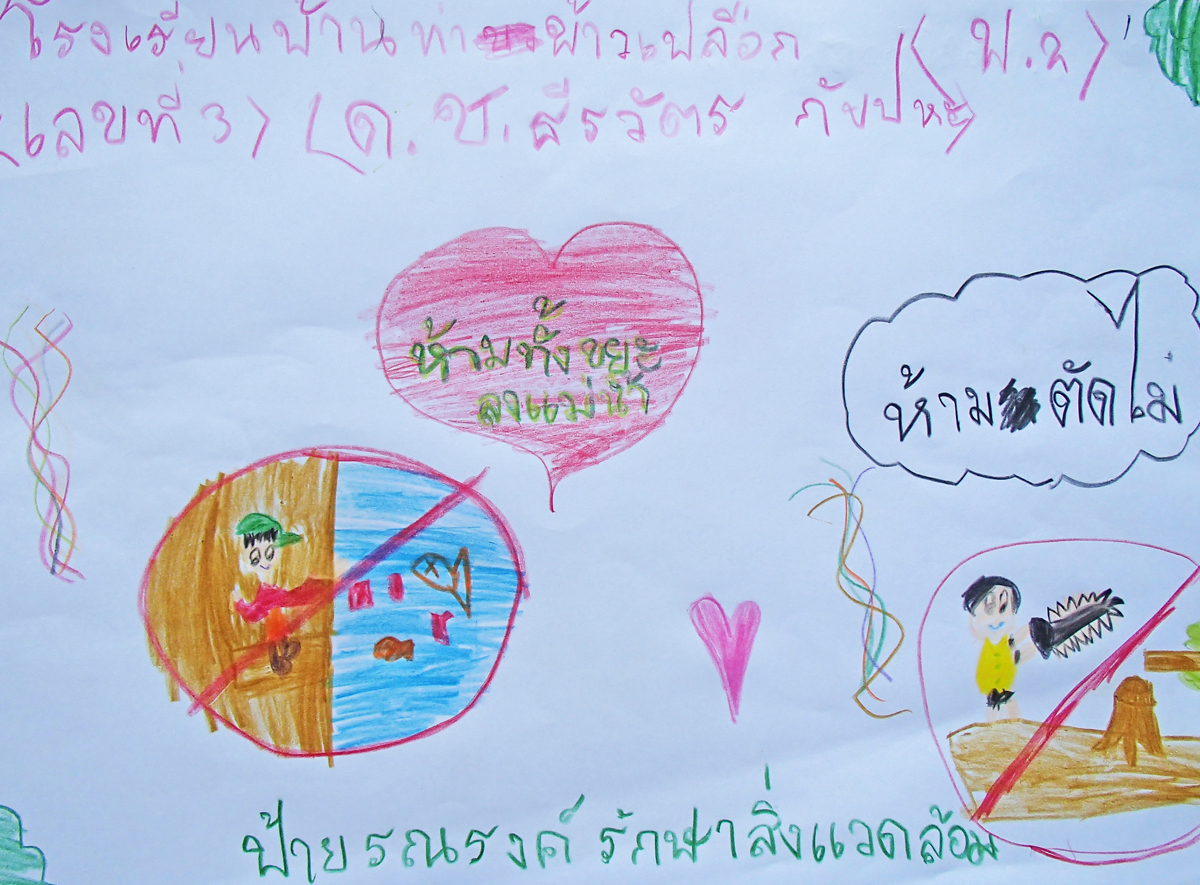 โรงเรียนบ้านท่าข้าวเปลือก (ป.2)
(เลขที่ 3) (ด.ช.ธีรวัตร
ห้ามทิ้งขยะ
ลงแม่น้ำ
ห้ามตัดไม่
ป้ายรณรงค์ รักษาสิ่งแวดล้อม